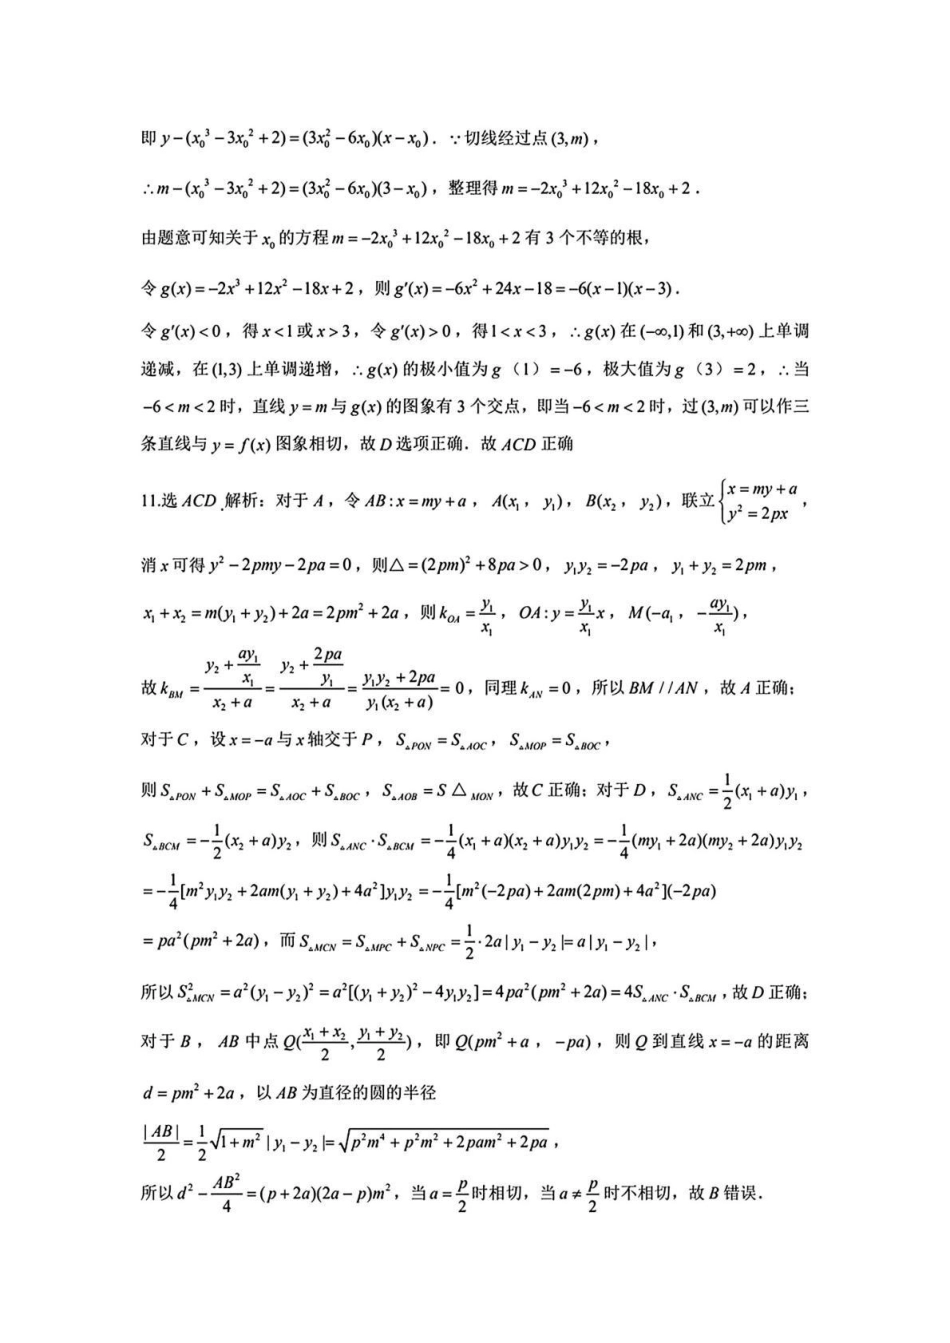 即 y-(x₀³-3x₀²+2)=(3x₀²-6x₀)(x-x₀). ∵切线经过点(3,m),
∴m-(x₀³-3x₀²+2)=(3x₀²-6x₀)(3-x₀), 整理得 m=-2x₀³+12x₀²-18x₀+2.
由题意可知关于 x₀ 的方程 m=-2x₀³+12x₀²-18x₀+2 有 3 个不等的根,
令 g(x)=-2x³+12x²-18x+2, 则 g′(x)=-6x²+24x-18=-6(x-1)(x-3).
令 g′(x)<0, 得 x<1 或 x>3, 令 g′(x)>0, 得 1<x<3, ∴g(x) 在 (-∞,1) 和 (3,+∞) 上单调
递减, 在 (1,3) 上单调递增, ∴g(x) 的极小值为 g (1) =-6, 极大值为 g (3) =2, ∴当
-6<m<2 时, 直线 y=m 与 g(x) 的图象有 3 个交点, 即当 -6<m<2 时, 过 (3,m) 可以作三
条直线与 y=f(x) 图象相切, 故 D 选项正确. 故 ACD 正确
11.选 ACD .解析: 对于 A, 令 AB:x=my+a, A(x₁, y₁), B(x₂, y₂), 联立 {x=my+a y²=2px,
消 x 可得 y²-2pmy-2pa=0, 则△=(2pm)²+8pa>0, y₁y₂=-2pa, y₁+y₂=2pm,
x₁+x₂=m(y₁+y₂)+2a=2pm²+2a, 则 k_{OA}=\frac{y₁}{x₁}, OA:y=\frac{y₁}{x₁}x, M(-a, -\frac{ay₁}{x₁}),
故 k_{BM}=\frac{y₂+\frac{ay₁}{x₁}}{x₂+a}=\frac{y₂+\frac{2pa}{y₁}}{x₂+a}=\frac{y₁y₂+2pa}{y₁(x₂+a)}=0, 同理 k_{AN}=0, 所以 BM//AN, 故 A 正确;
对于 C, 设 x=-a 与 x 轴交于 P, S_{△PON}=S_{△AOC}, S_{△MOP}=S_{△BOC},
则 S_{△PON}+S_{△MOP}=S_{△AOC}+S_{△BOC}, S_{△AOB}=S△_{MON}, 故 C 正确; 对于 D, S_{△ANC}=\frac{1}{2}(x₁+a)y₁,
S_{△BCM}=-\frac{1}{2}(x₂+a)y₂, 则 S_{△ANC}·S_{△BCM}=-\frac{1}{4}(x₁+a)(x₂+a)y₁y₂=-\frac{1}{4}(my₁+2a)(my₂+2a)y₁y₂
=-\frac{1}{4}[m²y₁y₂+2am(y₁+y₂)+4a²]y₁y₂=-\frac{1}{4}[m²(-2pa)+2am(2pm)+4a²](-2pa)
=pa²(pm²+2a), 而 S_{△MCN}=S_{△MPC}+S_{△NPC}=\frac{1}{2}·2a|y₁-y₂|=a|y₁-y₂|,
所以 S²_{△MCN}=a²(y₁-y₂)²=a²[(y₁+y₂)²-4y₁y₂]=4pa²(pm²+2a)=4S_{△ANC}·S_{△BCM}, 故 D 正确;
对于 B, AB 中点 Q(\frac{x₁+x₂}{2},\frac{y₁+y₂}{2}), 即 Q(pm²+a, -pa), 则 Q 到直线 x=-a 的距离
d=pm²+2a, 以 AB 为直径的圆的半径
\frac{|AB|}{2}=\frac{1}{2}\sqrt{1+m²}|y₁-y₂|=\sqrt{p²m⁴+p²m²+2pam²+2pa},
所以 d²-\frac{AB²}{4}=(p+2a)(2a-p)m², 当 a=\frac{p}{2} 时相切, 当 a≠\frac{p}{2} 时不相切, 故 B 错误.